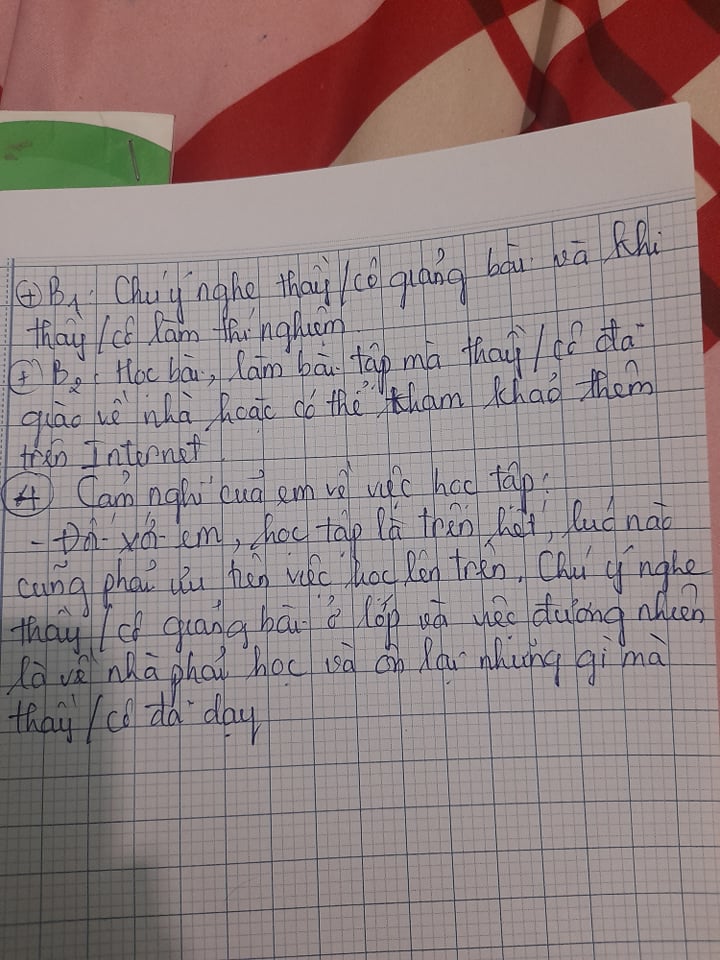 (+) B1: Chú ý nghe thầy/cô giảng bài và khi
thầy/cô làm thí nghiệm.
(+) B2: Học bài, làm bài tập mà thầy/cô đã
giao về nhà hoặc có thể tham khảo thêm
trên Internet.
(4) Cảm nghĩ của em về việc học tập:
- Đối với em, học tập là trên hết, lúc nào
cũng phải ưu tiên việc học lên trên, Chú ý nghe
thầy/cô giảng bài ở lớp và việc đương nhiên
là về nhà phải học và ôn lại những gì mà
thầy/cô đã dạy